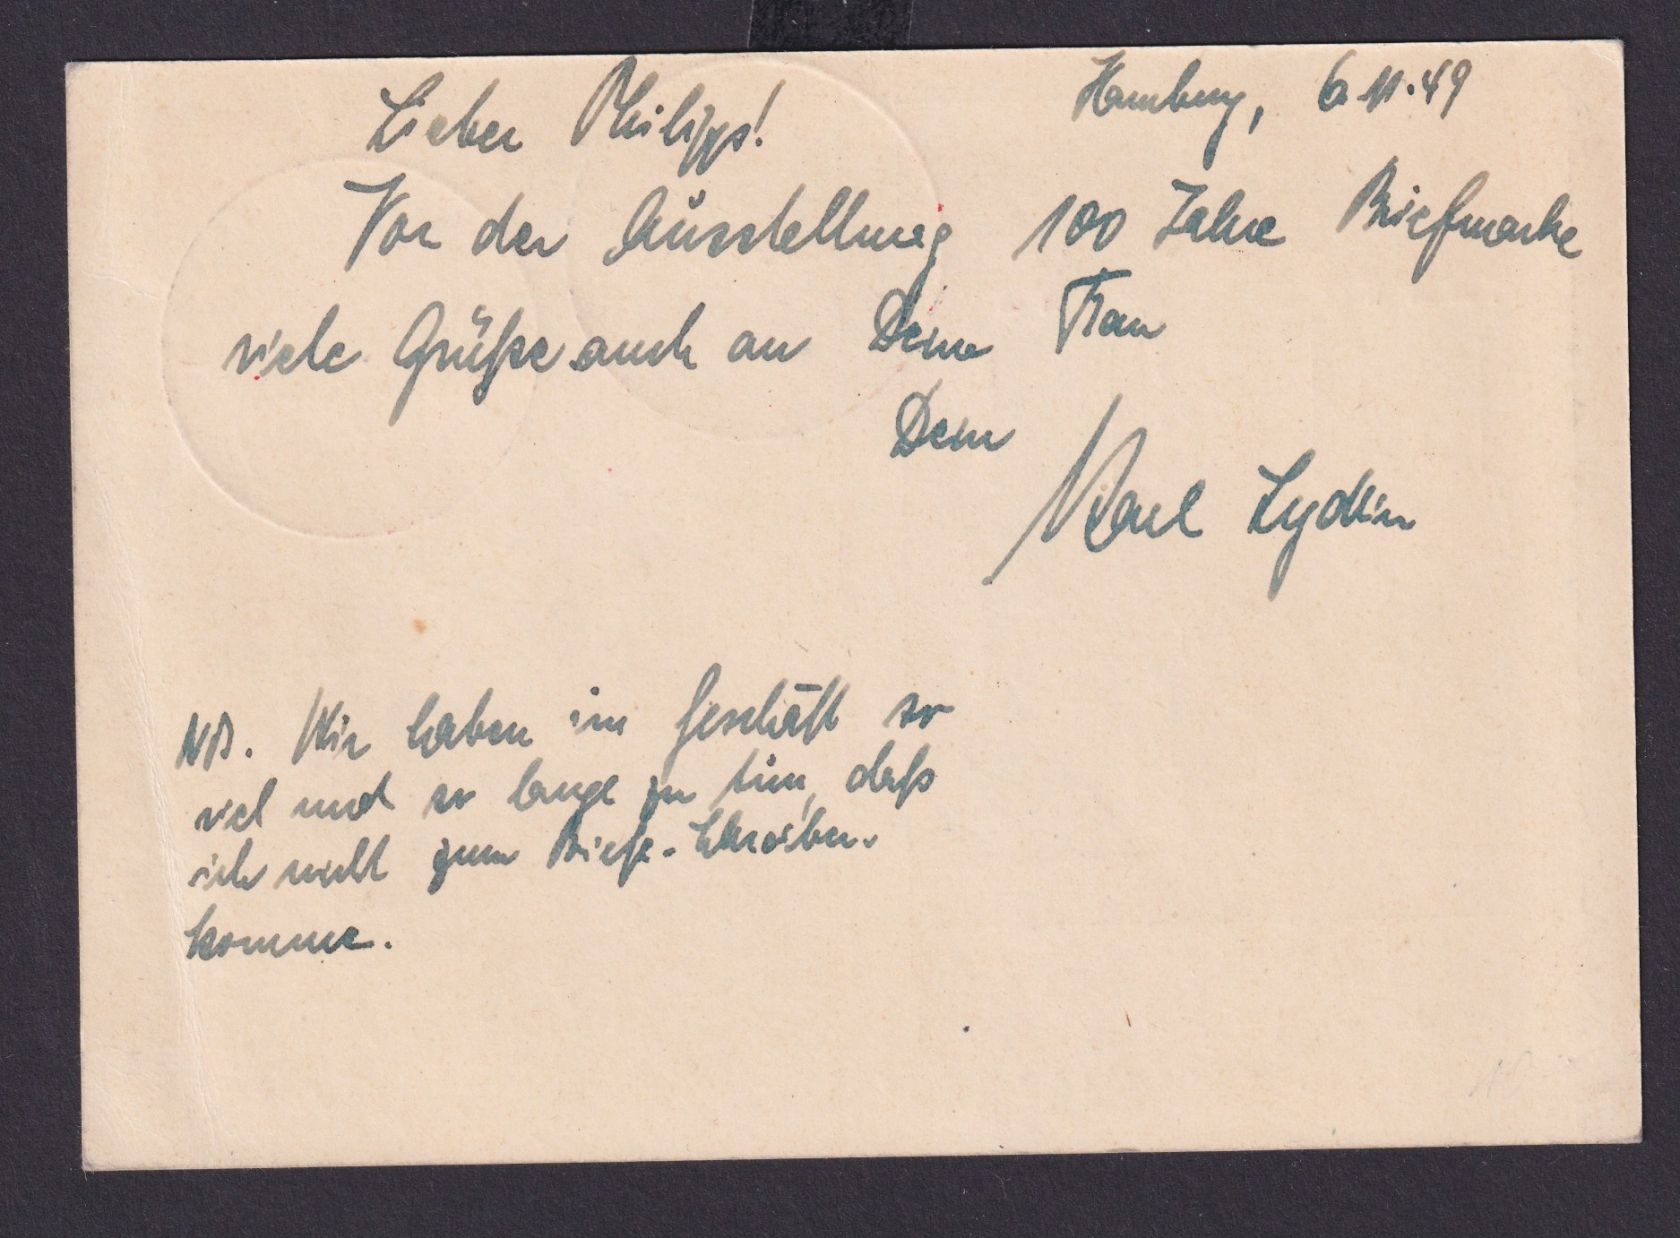 Hamburg, 6.11.49
Lieber Philipps!
Von der Ausstellung 100 Jahre Briefmarke
viele Grüße auch an Deine Frau
Dein
Karl
NB. Wir haben im Geschäft so
viel und so lange zu tun, daß
ich nicht zum Briefe-Schreiben.
komme.